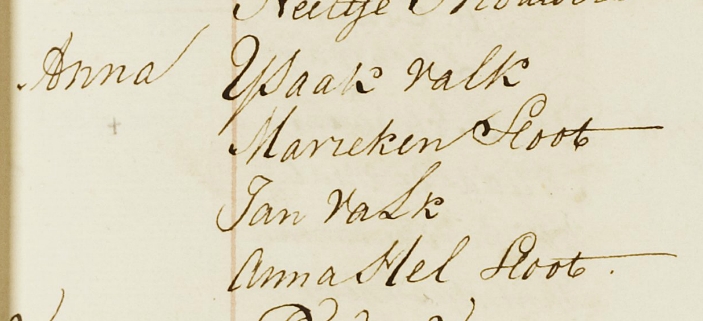 Neeltje
Anna Ysaak valk
Marieken Sloot
Jan valk
Anna Hel Sloot.